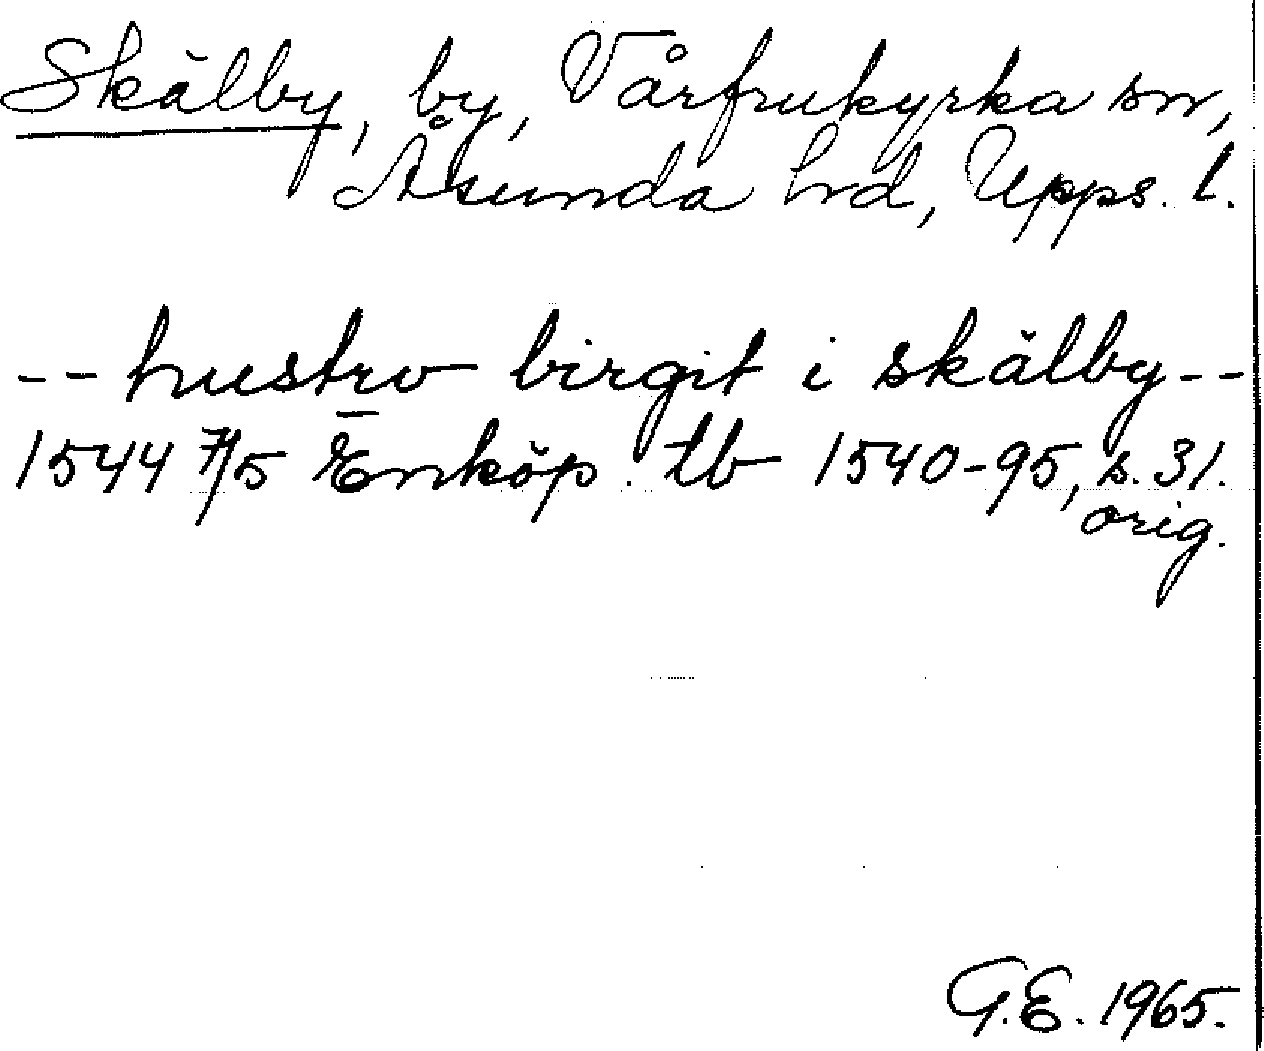 Skälby, by, Vårfrukyrka sn,
Åsunda hrd, Upps. l.
-- hustrv birgit i skälby --
1544 7/5 Enköp. tb 1540-95, s. 31.
orig.
G.E. 1965.